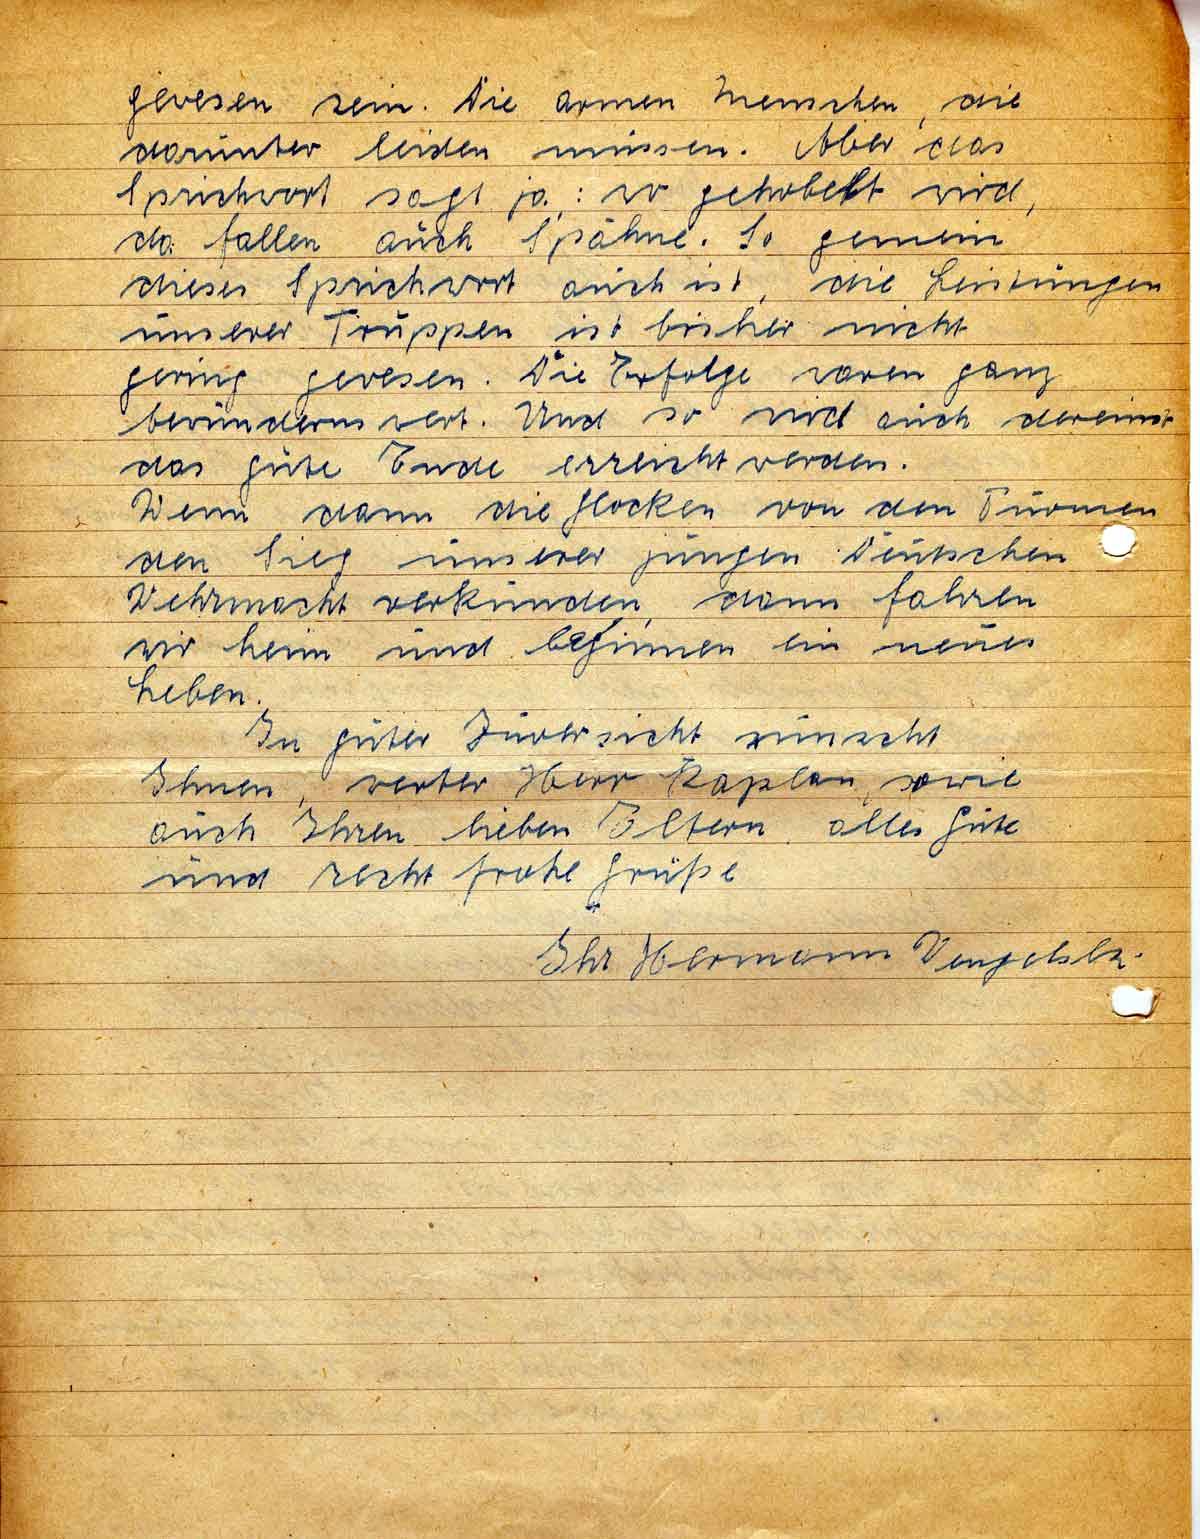 gewesen sein. Die armen Menschen, die
darunter leiden müssen. Aber das
Sprichwort sagt ja: wo gehobelt wird,
da fallen auch Spähne. So gemein
dieses Sprichwort auch ist, die Leistungen
unserer Truppen ist bisher nicht
gering gewesen. Die Erfolge waren ganz
bewundernswert. Und so wird auch dereinst
das gute Ende erreicht werden.
Wenn dann die Glocken von den Türmen
den Sieg unserer jungen Deutschen
Wehrmacht verkünden, dann fahren
wir heim und beginnen ein neues
Leben.
In guter Zuversicht wünscht
Ihnen, werter Herr Kaplan, sowie
auch Ihren lieben Eltern alles Gute
und recht frohe Grüße
Ihr Hermann